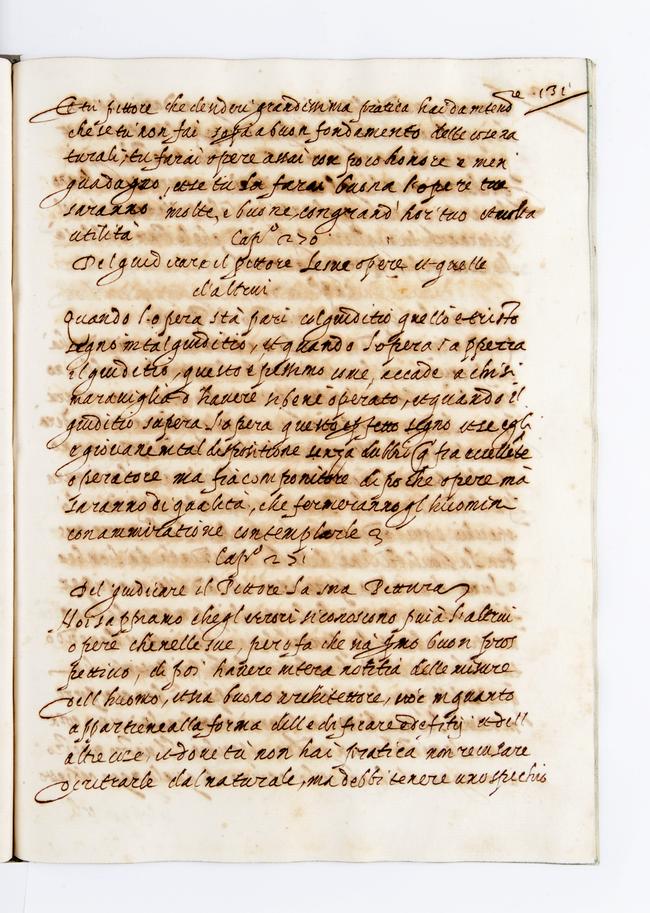 131
Et tu pittore che desideri grandissima pratica hai da intend
re
che se tu non fai sopra buon fondamento delle cose na
turali, tu farai opere assai con poco honore e men
guadagno, et se tu la farai buona l'opere tue
saranno molte, e buone, con grand' honor tuo et molta
utilità
Cap.º 270
Del giudicare il pittore le sue opere et quelle
d'altrui
Quando l'opera stà pari col giuditio quello è tristo
segno in tal giuditio, et quando l'opera supera
il giuditio, questo è pessimo come accade a chi si
maraviglia d'havere si bene operato, et quando il
giuditio supera l'opera questo è perfetto segno et se egli
è giovane in tal dispositione senza dubbio fia eccellente
operatore ma fia componitore di poche opere mà
saranno di qualità, che fermeranno gl' huomini
con ammiratione contemplarle
Cap.º 271
Del giudicare il Pittore la sua Pittura
Noi sappiamo che gl'errori si conoscono più à l'altrui
opere che nelle sue, però fa che sia primo buon pros
pettivo, di poi havere intera notitia delle misure
dell' huomo, et sia buono architettore, cioè in quanto
appartiene alla forma delle edificare edefitij et dell
altre cose, et dove tu non hai pratica non recusare
ritrarle dal naturale, ma debbi tenere uno spechio